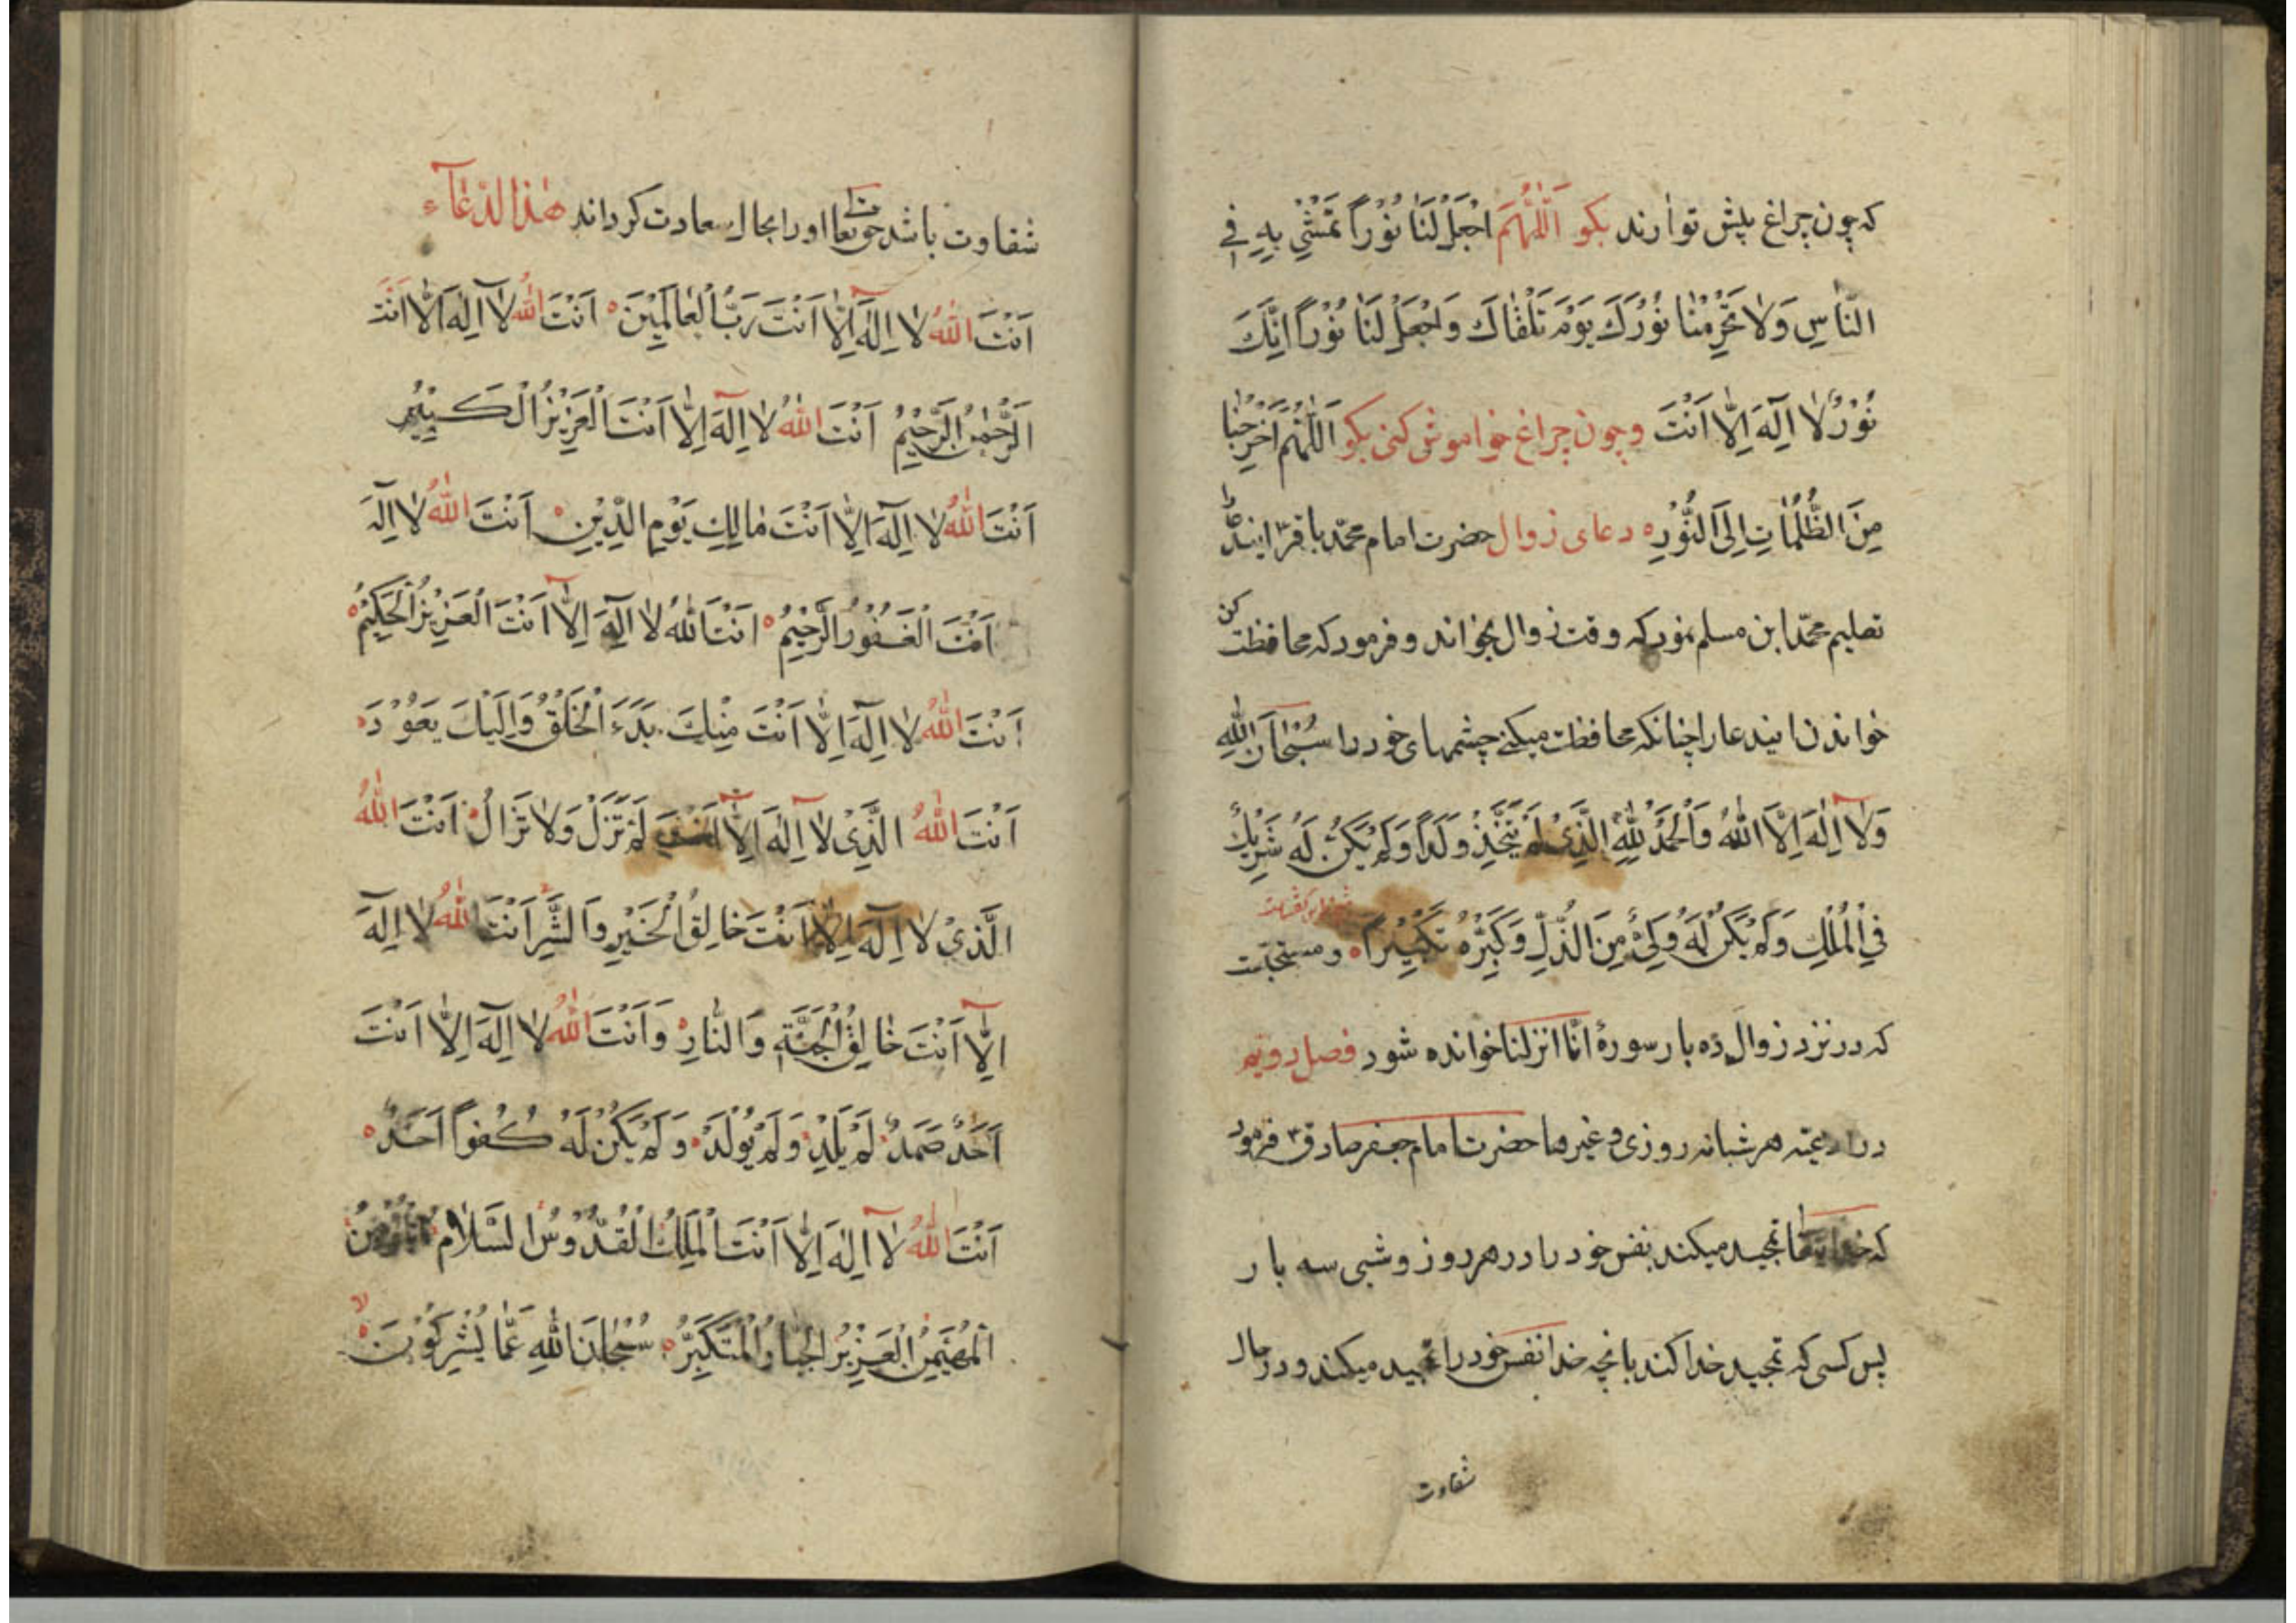 که چون چراغ پیش تو ارند بکو اَللّٰهُمَّ اجْعَلْ لَنٰا نُوْراً تَمْشِیْ بِهِ فِی
النّٰاسِ وَلاٰ تَحْرِمْنٰا نُوْرَكَ یَوْمَ نَلْقٰاكَ وَاجْعَلْ لَنٰا نُوْراً اِنَّكَ
نُوْرٌ لاٰ اِلٰهَ اِلّٰا اَنْتَ وچون چراغ خواموش کنی بکو اَللّٰهُمَّ اَخْرِجْنٰا
مِنَ الظُّلُمٰاتِ اِلَی النُّوْرِ دعای زوال حضرت امام محمّد باقر ایندعا
تعلیم محمّد ابن مسلم نمود که وقت زوال بخواند و فرمود که محافظت کن
خواندن ایندعا را چنانکه محافظت میکنے چشمهای خود را سُبْحٰانَ اللّٰهِ
وَلاٰ اِلٰهَ اِلَّا اللّٰهُ وَالْحَمْدُ لِلّٰهِ الَّذِیْ لَمْ یَتَّخِذْ وَلَداً وَلَمْ یَكُنْ لَهُ شَرِیْكٌ
فِی الْمُلْكِ وَلَمْ یَكُنْ لَهُ وَلِیٌّ مِنَ الذُّلِّ وَكَبِّرْهُ تَكْبِیْراً ومستحبّست
که در نزد زوال ده بار سورۀ انّا انزلنا خوانده شود فصل دویم
در ادعیّه هر شبانه روزی و غیرها حضرت امام جعفر صادق فرمود
که تمجید میکند نفس خود را در هر روز و شبی سه بار
پس کسی که تمجید خدا کند بانچه خدا نفس خود را تمجید میکند و در حال
شقاوت
شقاوت باشد حق تعا او را بحال سعادت کرداند هٰذَا الدُّعٰآء
اَنْتَ اللّٰهُ لاٰ اِلٰهَ اِلّٰا اَنْتَ رَبُّ الْعٰالَمِیْنَ اَنْتَ اللّٰهُ لاٰ اِلٰهَ اِلّٰا اَنْتَ
الرَّحْمٰنُ الرَّحِیْمُ اَنْتَ اللّٰهُ لاٰ اِلٰهَ اِلّٰا اَنْتَ الْعَزِیْزُ الْكَبِیْرُ
اَنْتَ اللّٰهُ لاٰ اِلٰهَ اِلّٰا اَنْتَ مٰالِكِ یَوْمِ الدِّیْنِ اَنْتَ اللّٰهُ لاٰ اِلٰهَ
اَنْتَ الْغَفُوْرُ الرَّحِیْمُ اَنْتَ اللّٰهُ لاٰ اِلٰهَ اِلّٰا اَنْتَ الْعَزِیْزُ الْحَكِیْمُ
اَنْتَ اللّٰهُ لاٰ اِلٰهَ اِلّٰا اَنْتَ مِنْكَ بَدَءَ الْخَلْقُ وَاِلَیْكَ یَعُوْدَ
اَنْتَ اللّٰهُ الَّذِیْ لاٰ اِلٰهَ اِلّٰا اَنْتَ لَمْ تَزَلْ وَلاٰ تَزٰالُ اَنْتَ اللّٰهُ
الَّذِیْ لاٰ اِلٰهَ اِلّٰا اَنْتَ خٰالِقُ الْخَیْرِ وَالشَّرِّ اَنْتَ اللّٰهُ لاٰ اِلٰهَ
اِلّٰا اَنْتَ خٰالِقُ الْجَنَّةِ وَالنّٰارِ وَاَنْتَ اللّٰهُ لاٰ اِلٰهَ اِلّٰا اَنْتَ
اَحَدٌ صَمَدٌ لَمْ یَلِدْ وَلَمْ یُوْلَدْ وَلَمْ یَكُنْ لَهُ كُفُواً اَحَدٌ
اَنْتَ اللّٰهُ لاٰ اِلٰهَ اِلّٰا اَنْتَ الْمَلِكُ الْقُدُّوْسُ السَّلاٰمُ الْمُؤْمِنُ
الْمُهَیْمِنُ الْعَزِیْزُ الْجَبّٰارُ الْمُتَكَبِّرُ سُبْحٰانَ اللّٰهِ عَمّٰا یُشْرِكُوْنَ